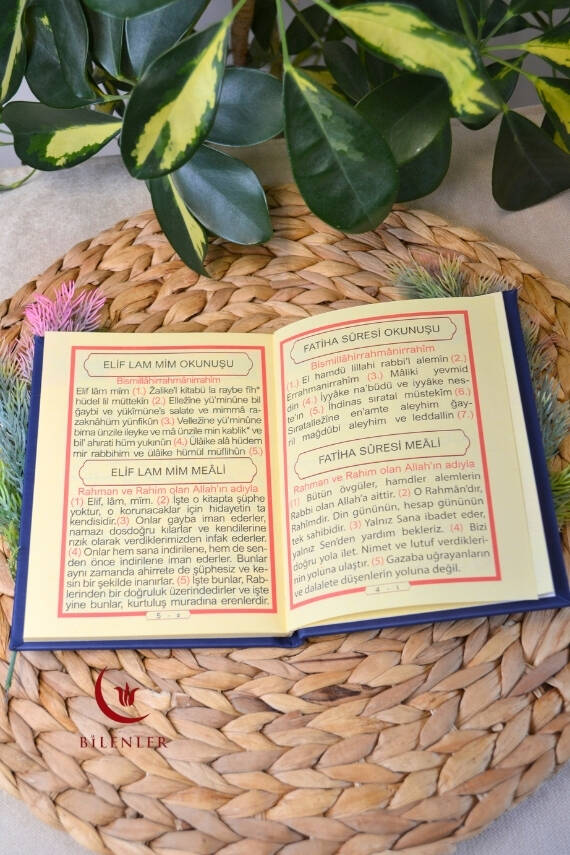 ELİF LAM MİM OKUNUŞU
Bismillâhirrahmânirrahîm
Elif lâm mîm (1.) Żalike'l kitabü la raybe fîh*
hüdel lil müttekin (2.) Elleżîne yü'minûne bil
ğaybi ve yükîmûne's salate ve mimmâ ra-
zaknâhüm yünfikûn (3.) Velleżîne yü'minûne
bima ünzile ileyke ve mâ ünzile min kablik* ve
bil' ahırati hüm yukınûn (4.) Ülâike alâ hüdem
mir rabbihim ve ülâike hümül müflihûn (5.)
ELİF LAM MİM MEÂLİ
Rahman ve Rahim olan Allah'ın adıyla
(1) Elif, lâm, mîm. (2) İşte o kitapta şüphe
yoktur, o korunacaklar için hidayetin ta
kendisidir.(3) Onlar gayba iman ederler,
namazı dosdoğru kılarlar ve kendilerine
rızık olarak verdiklerimizden infak ederler.
(4) Onlar hem sana indirilene, hem de sen-
den önce indirilene iman ederler. Bunlar
aynı zamanda ahirete de şüphesiz ve ke-
sin bir şekilde inanırlar. (5) İşte bunlar, Rab-
lerinden bir doğruluk üzerindedirler ve işte
yine bunlar, kurtuluş muradına erenlerdir.
5 - ٥
FATİHA SÛRESİ OKUNUŞU
Bismillâhirrahmânirrahîm
(1.) El hamdü lillahi rabbi'l alemîn (2.)
Errahmanirrahîm (3.) Mâliki yevmid
dîn (4.) İyyâke na'büdü ve iyyâke nes-
te'în (5.) İhdinas sıratal müstekîm (6.)
Sıratallezîne en'amte aleyhim ğay-
ril mağdûbi aleyhim ve leddallîn (7.)
FATİHA SÛRESİ MEÂLİ
Rahman ve Rahim olan Allah'ın adıyla
(1) Bütün övgüler, hamdler alemlerin
Rabbi olan Allah'a aittir. (2) O Rahmân'dır,
Rahîmdir. Din gününün, hesap gününün
tek sahibidir. (3) Yalnız Sana ibadet eder,
yalnız Sen'den yardım bekleriz. (4) Bizi
doğru yola ilet. Nimet ve lutuf verdikleri-
nin yoluna ulaştır. (5) Gazaba uğrayanların
ve dalalete düşenlerin yoluna değil.
4 - ٤
BİLENLER